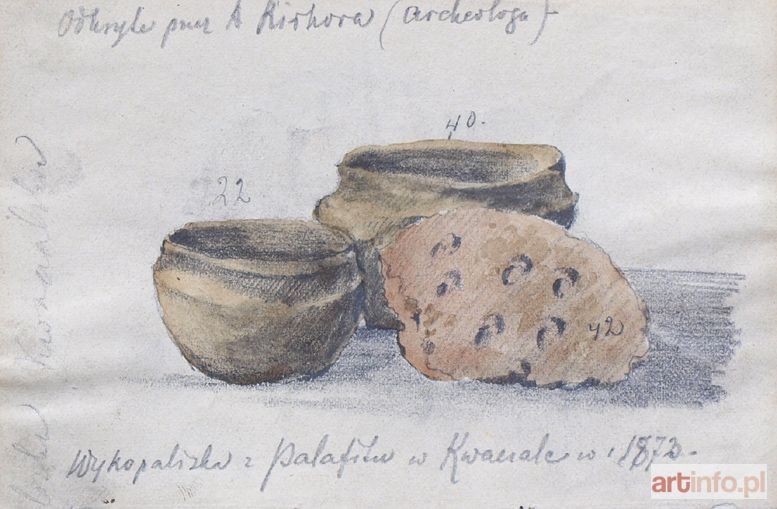 Odkryte przez A Kirkora (archeologa)
40.
22
42
Wykopaliska z Palafitu w Kwaczale w 1873.
artinfo.pl